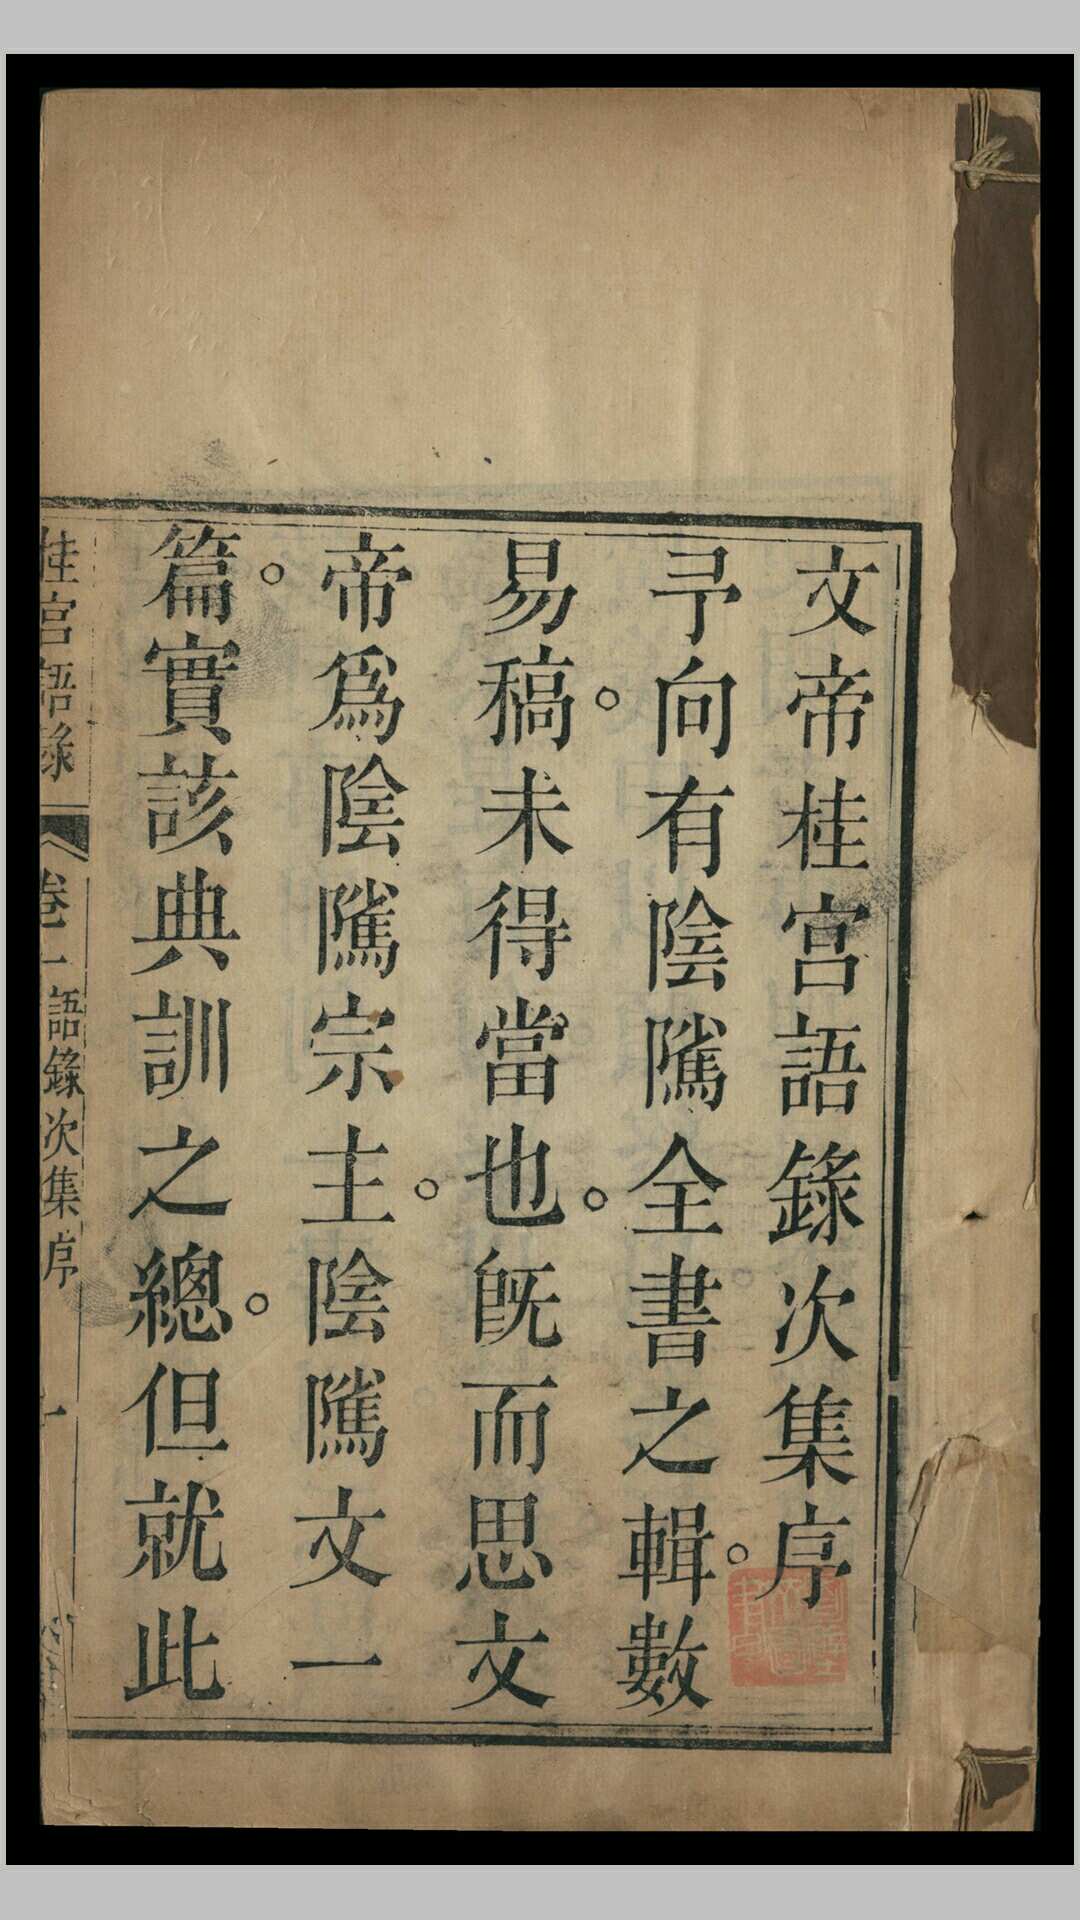 文帝桂宮語錄次集序
予向有陰隲全書之輯。數
易稿。未得當也。旣而思文
帝爲陰隲宗主。陰隲文一
篇。實該典訓之總。但就此
桂宮語錄 卷一 語錄次集序 一